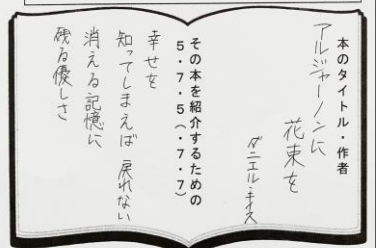 本のタイトル・作者
アルジャーノンに
花束を
ダニエル・キイス
その本を紹介するための
5・7・5(・7・7)
幸せを
知ってしまえば 戻れない
消える記憶に
残る優しさ